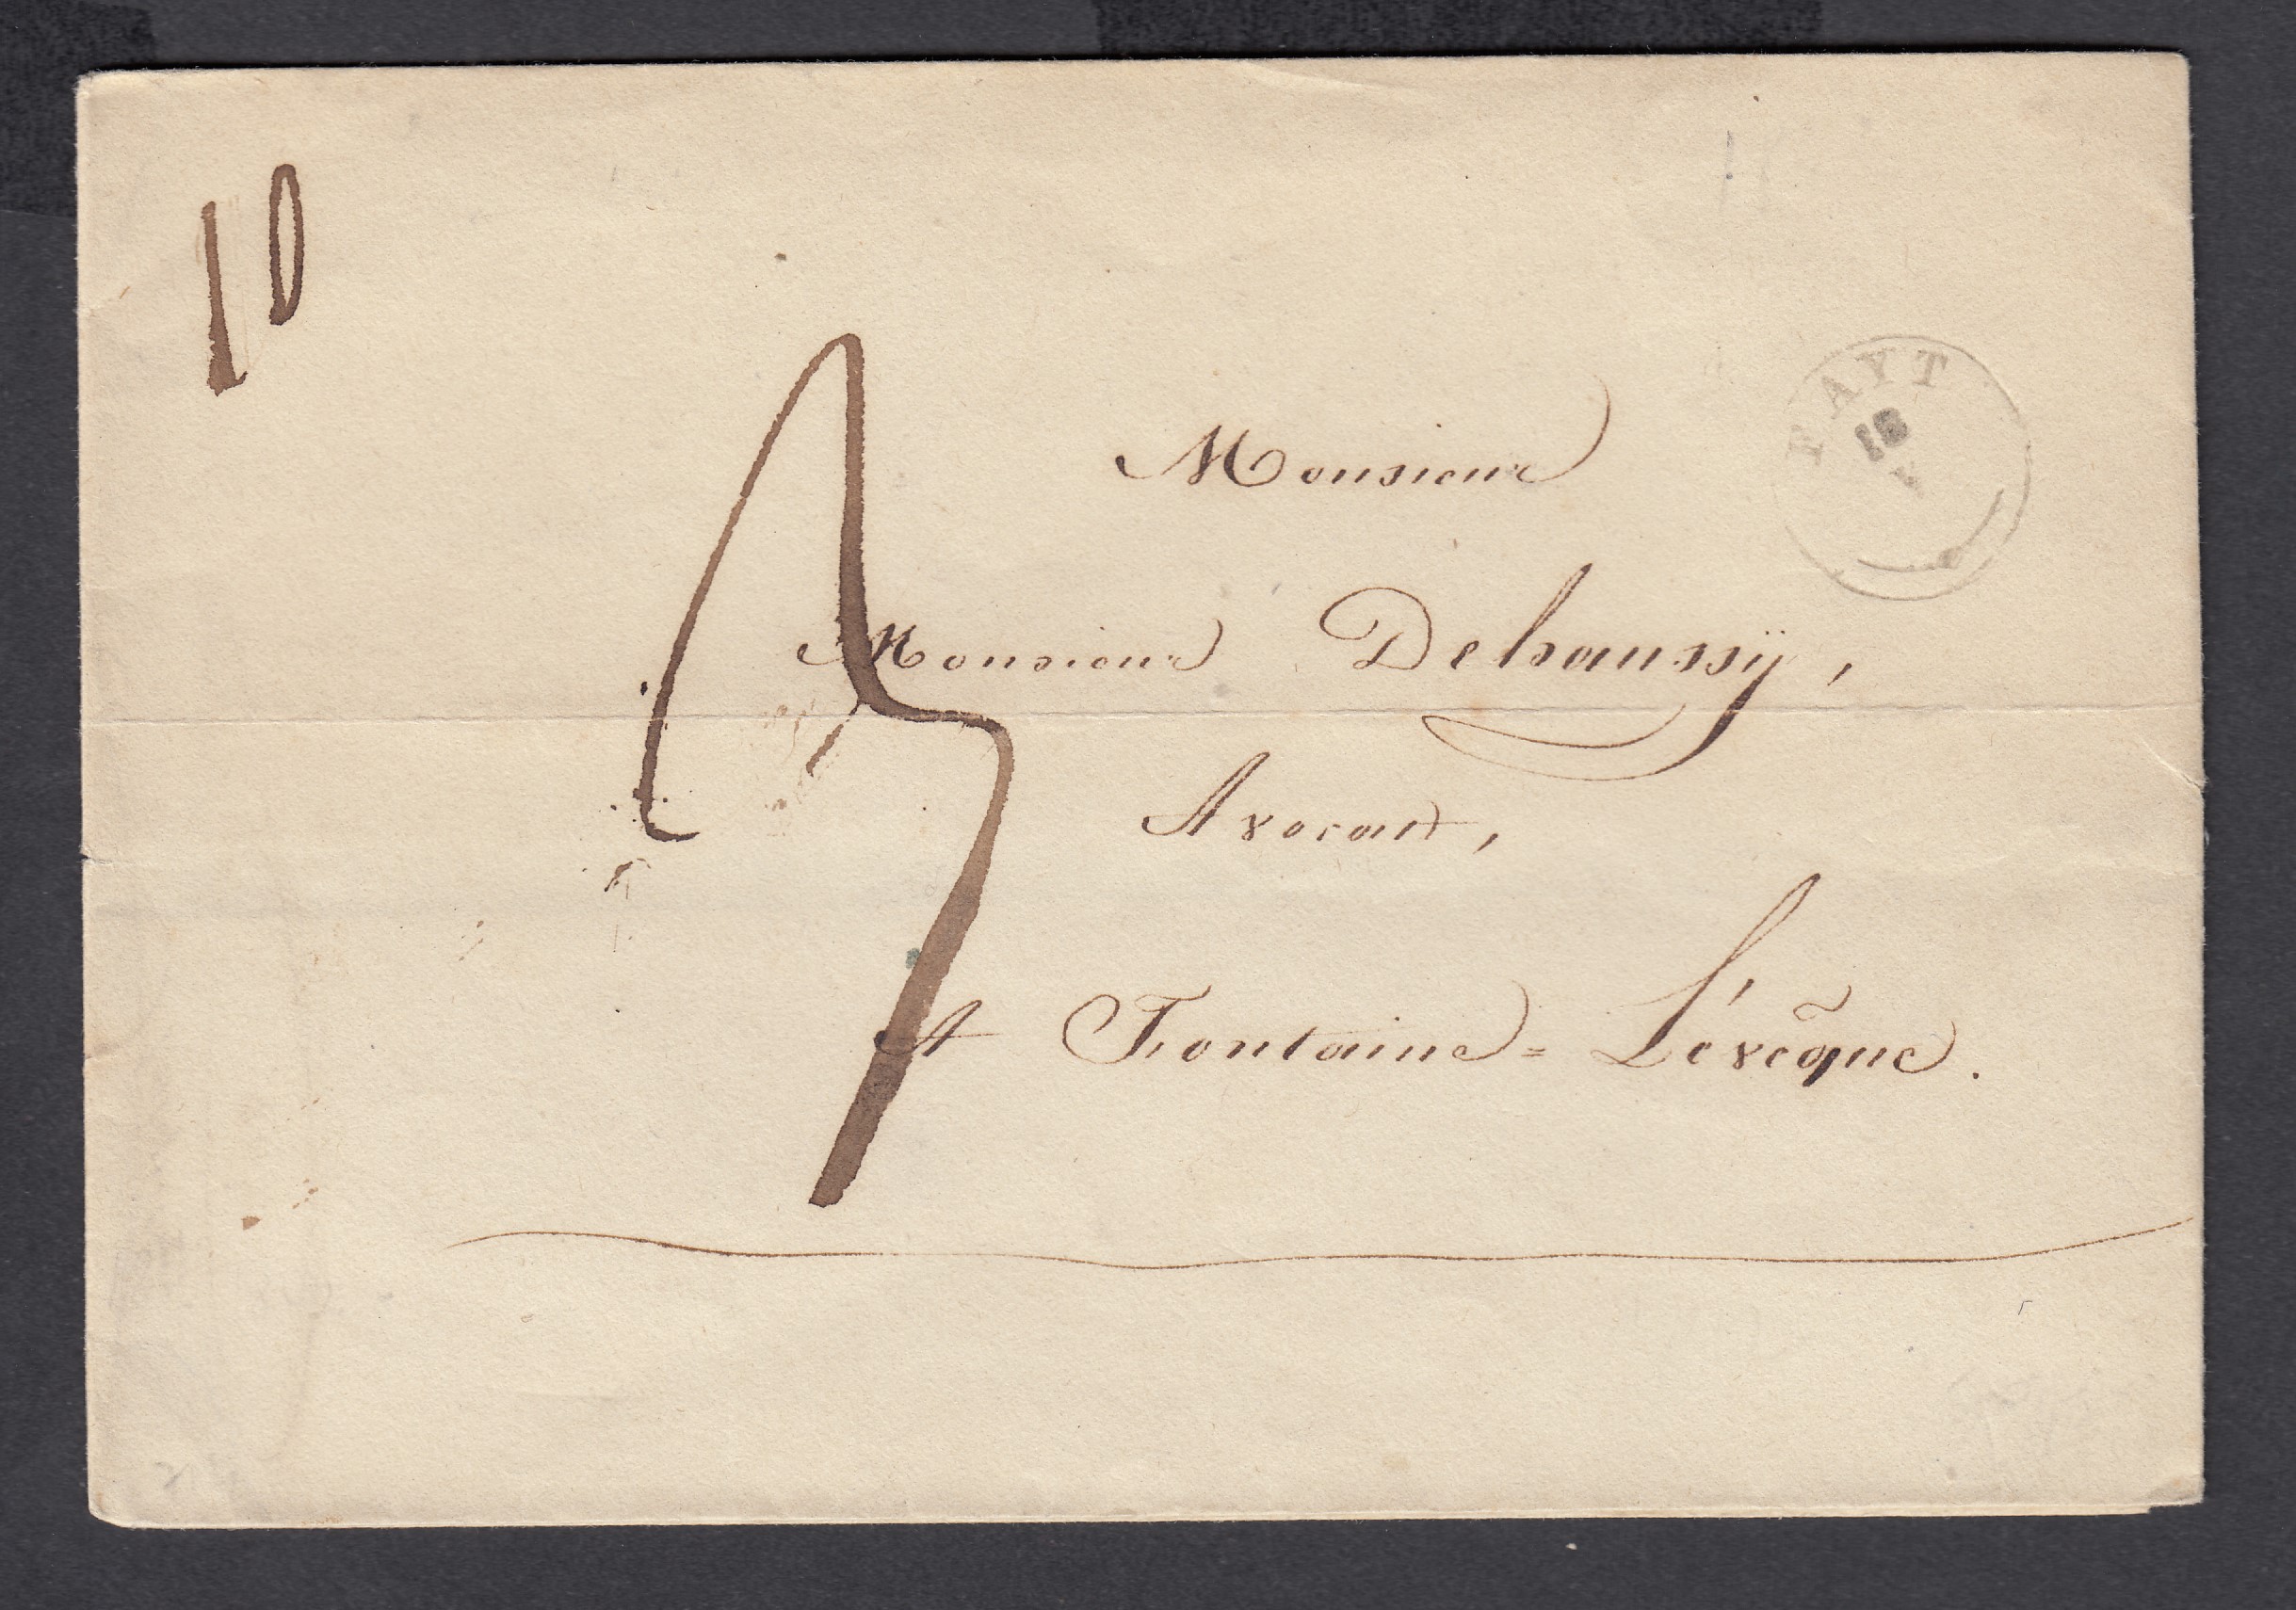 10
3
FAYT
18
Monsieur
Monsieur Dehaussÿ,
Avocat,
A Fontaine = L'évêque.